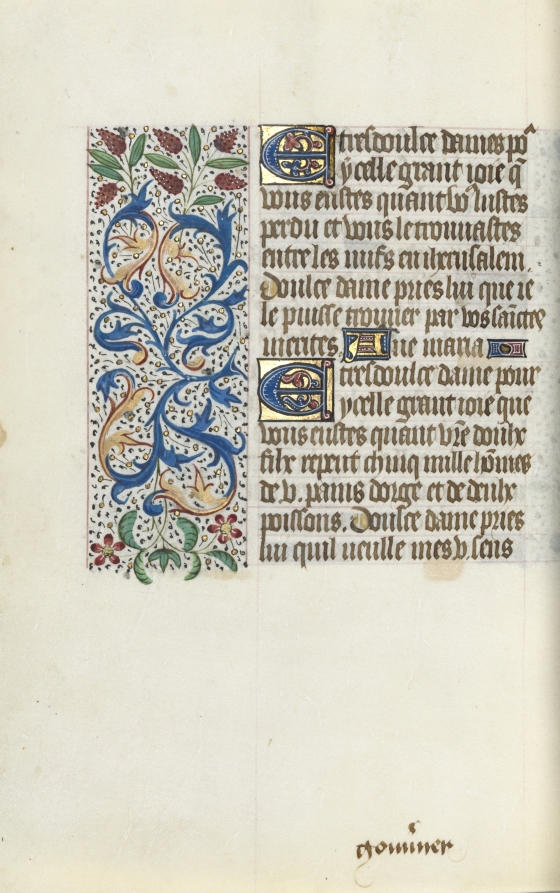 E tresdoulce dames po^r
ycelle grant ioie q̄
vous eustes quant vo^s lustes
perdu et vous le trouuastes
entre les iuifs en ihrusalem.
Doulce dame pries lui que ie
le puisse trouuer par vos sainctes
merites. Aue maria
E tresdoulce dame pour
ycelle grant ioie que
vous eustes quant vr̄e doulx
filx repeut chinq mille hōmes
de v. pains dorge et de deulx
poissons. Doulce dame pries
lui quil ueulle mes v. sens